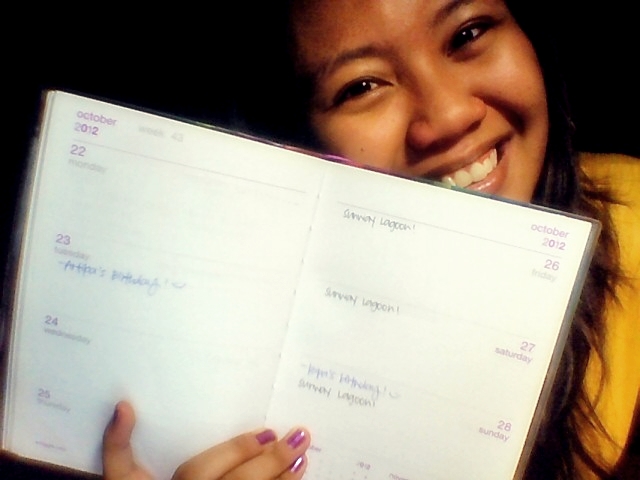 october
2012
week 43
22
monday
23
tuesday
birthday!
24
wednesday
25
thursday
october
2012
sunway lagoon!
26
friday
sunway lagoon!
27
saturday
birthday!
sunway lagoon!
28
sunday